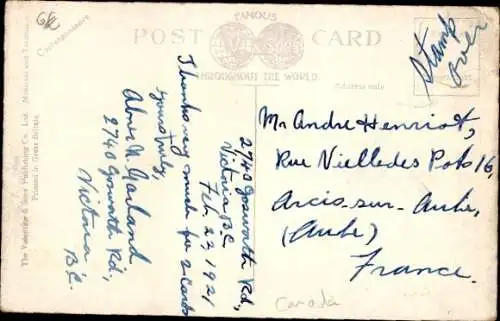 FAMOUS
POST CARD
THROUGHOUT THE WORLD.
Correspondence
Address only
Stamp
over
The Valentine & Sons Publishing Co., Ltd.
Printed in Great Britain.
2740 Gosworth Rd,
Victoria B.C.
Feb. 23, 1921
Thanks very much for 2 cards
yours truly,
Abner N. Garland
2740 Gosworth Rd,
Victoria
B.C.
Mr Andre Henriot,
Rue Vielledes Pots 16,
Arcis-sur-Aube,
(Aube)
France.
Canada